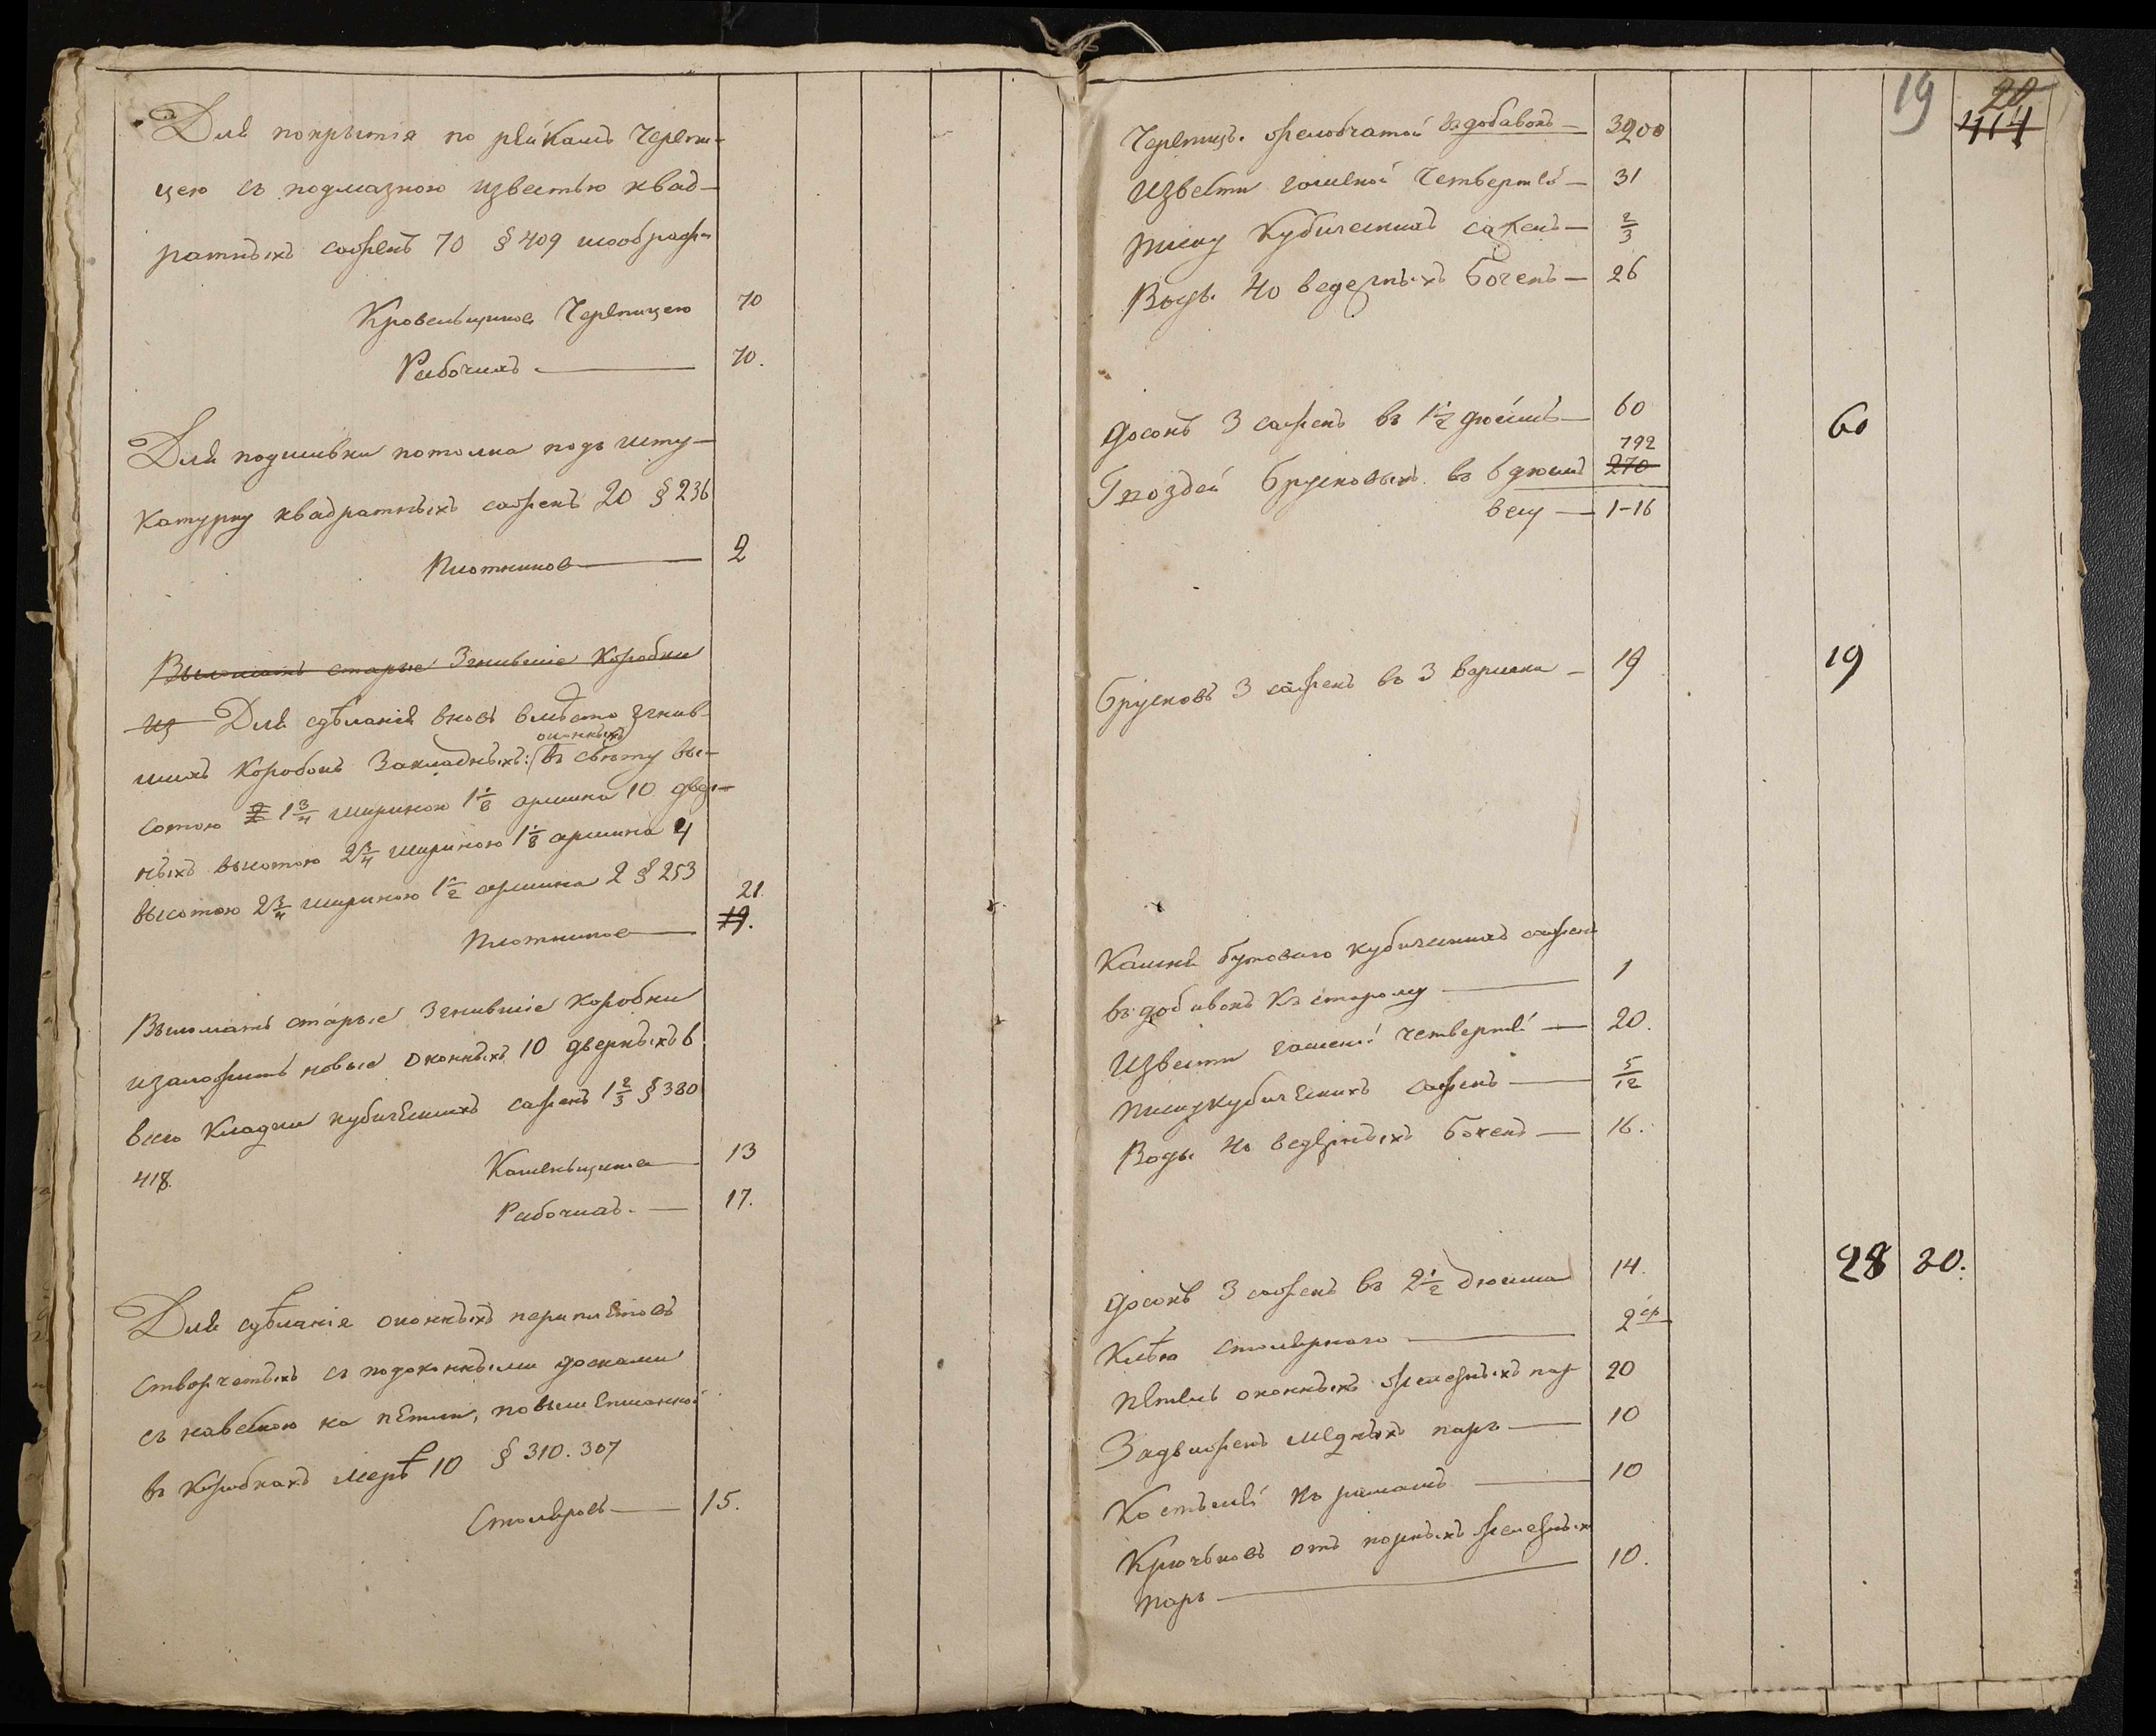 Для покрытія по рейкамъ Черепи-
цею съ подмазкою известью квад-
ратныхъ сажень 70 § 409 сообразн
Кровельщиковъ Черепицею 70
Рабочихъ 70.
Для подшивки потолка подъ шту-
катурку квадратныхъ сажень 20 § 236
Плотниковъ 2
Выломать старые Згнившіе Коробки
из Для сдѣланія вновь вмѣсто згнив-
оконныхъ
шихъ Коробокъ Закладныхъ: въ свѣту вы-
сотою 1 3/4 шириною 1 1/8 аршина 10 двер-
ныхъ высотою 2 3/4 шириною 1 1/8 аршина 4
высотою 2 3/4 шириною 1 1/2 аршина 2 § 253
21.
Плотниковъ 19.
Выломать старые Згнившіе Коробки
изаложить новые оконныхъ 10 дверныхъ 6
всего Кладки кубическихъ сажень 1 2/3 § 380
418. Каменьщиковъ 13
Рабочихъ. 17.
Для сдѣланія оконныхъ переплетовъ
створчетыхъ съ подоконными досками
съ навескою на петли, повышеписанной
въ Коробкахъ мерѣ 10 § 310. 307
Столяровъ 15.
19 20
414
Черепицъ. желобчатой въ добавокъ 3900
Извести гашеной Четвертей 31
Песку Кубическихъ сажень 2/3
Воды. 40 ведерныхъ Бочекъ 26
Досокъ 3 сажень въ 1 1/2 дюймъ 60 60
792
Гвоздей Брусковыхъ въ 6 дюйм 270
весу 1-16
Брусковъ 3 сажень въ 3 вершка 19 19
Камня бутоваго кубическихъ сажень
въ добавокъ Къ старому 1
Извести гашеной четвертей 20.
Песку кубическихъ сажень 5/12
Воды 40 ведерныхъ Бочекъ 16.
Досокъ 3 сажень въ 2 1/2 дюйма 14. 28 20.
Клѣю столярнаго 2 ф
Петель оконныхъ железныхъ пар 20
Задвижекъ медныхъ паръ 10
Костылей къ рамамъ 10
Крючьковъ отъ порныхъ железных
паръ 10.